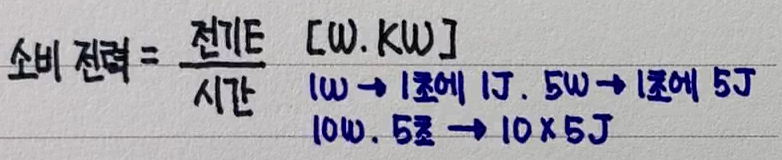 소비 전력 = 전기E / 시간 [W. KW]
1W → 1초에 1J. 5W → 1초에 5J
10W. 5초 → 10×5J